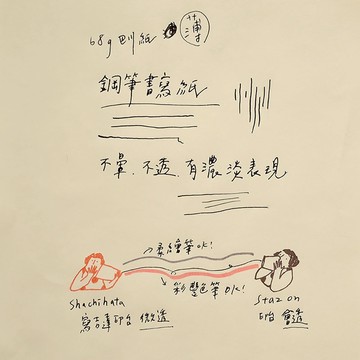 68g 刷紙
鋼筆書寫紙
不暈、不透、有濃淡表現
柔繪筆OK!
彩艷筆OK!
Shachihata
寫吉達印台 微透
Stazon
印台 會透